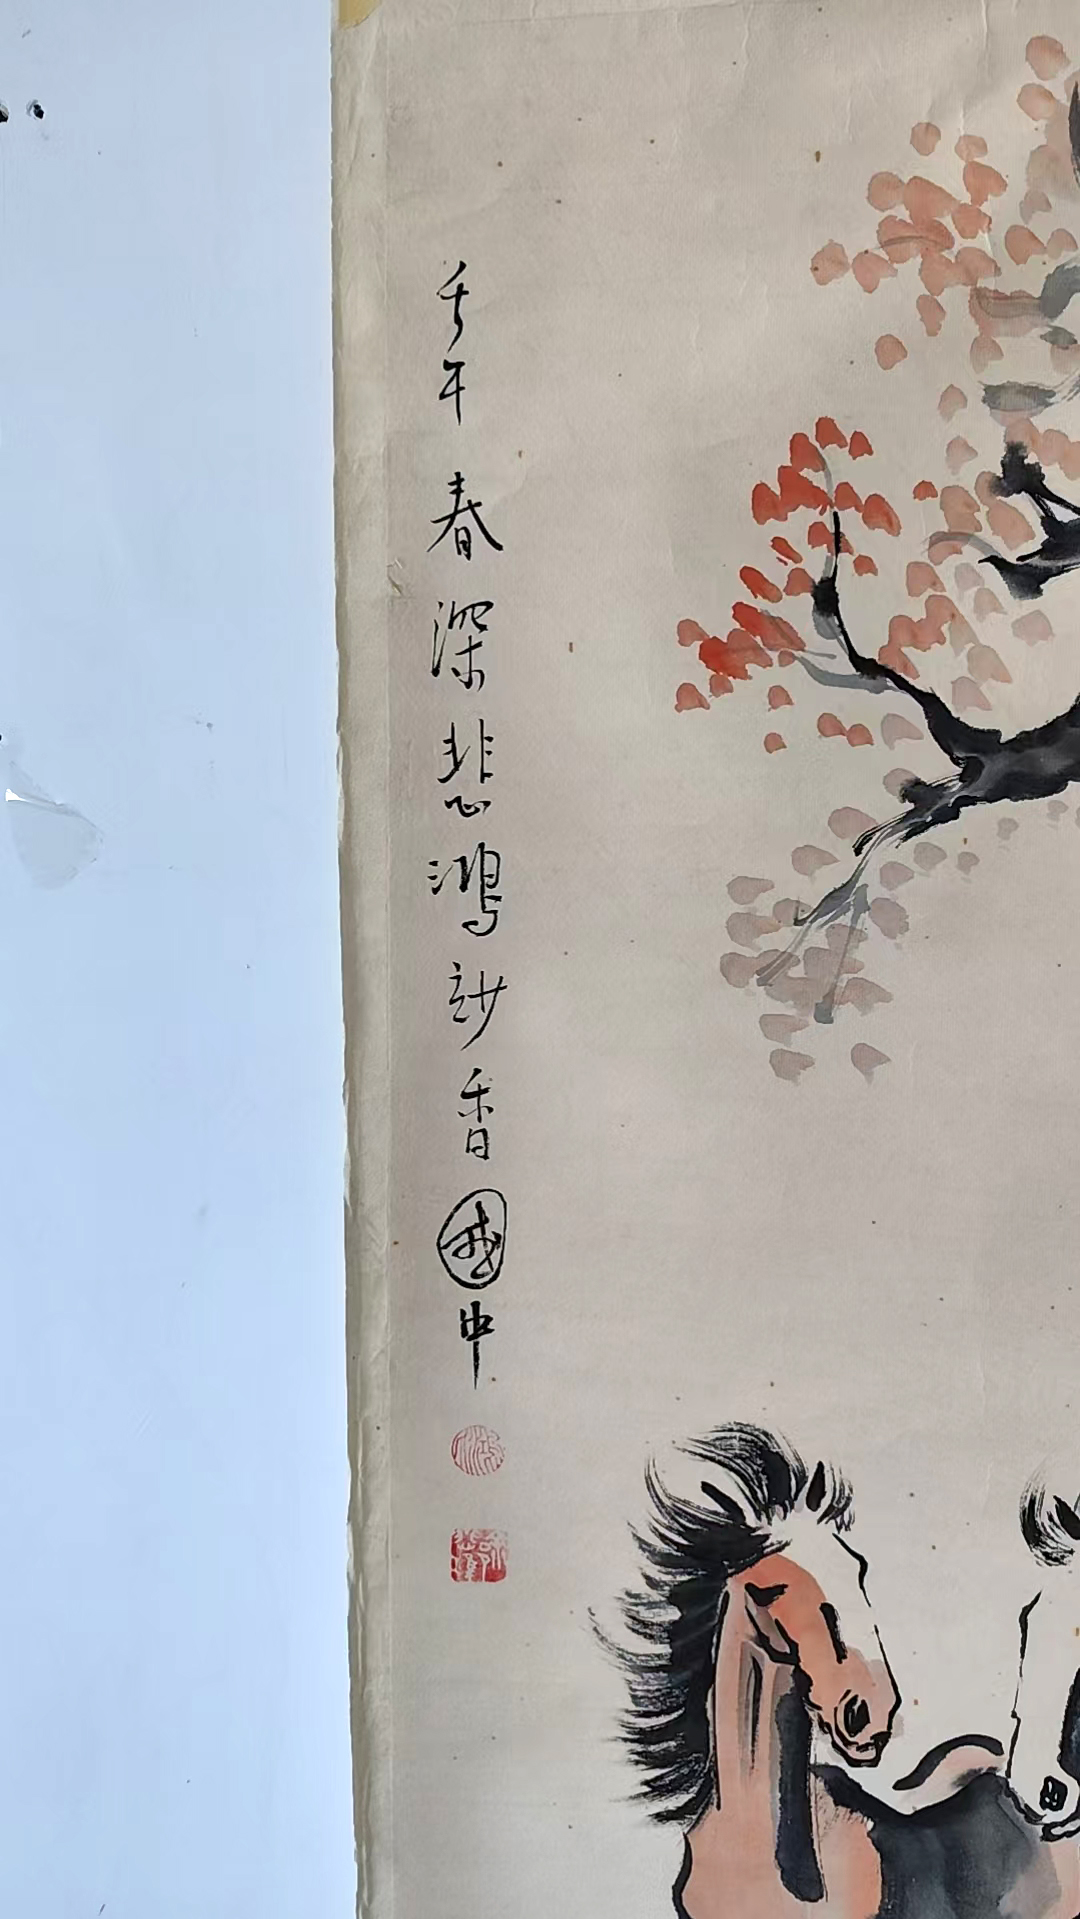 壬午春深悲鴻妙香國中